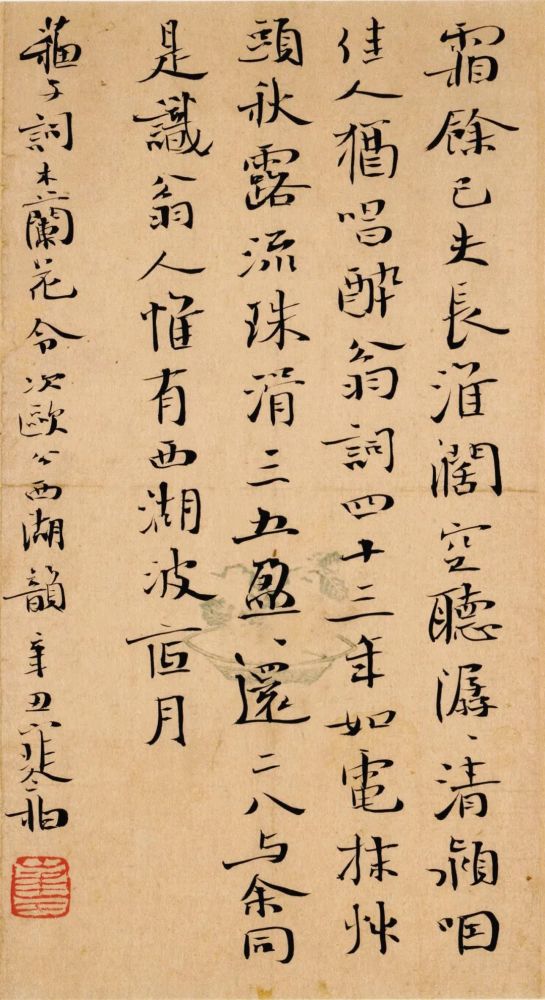 霜餘已失長淮濶空聽潺、清潁咽
佳人猶唱醉翁詞四十三年如電抹艸
頭秋露流珠滑三五盈、還二八与余同
是識翁人惟有西湖波底月
蘇子詞木蘭花令次歐公西湖韻辛丑